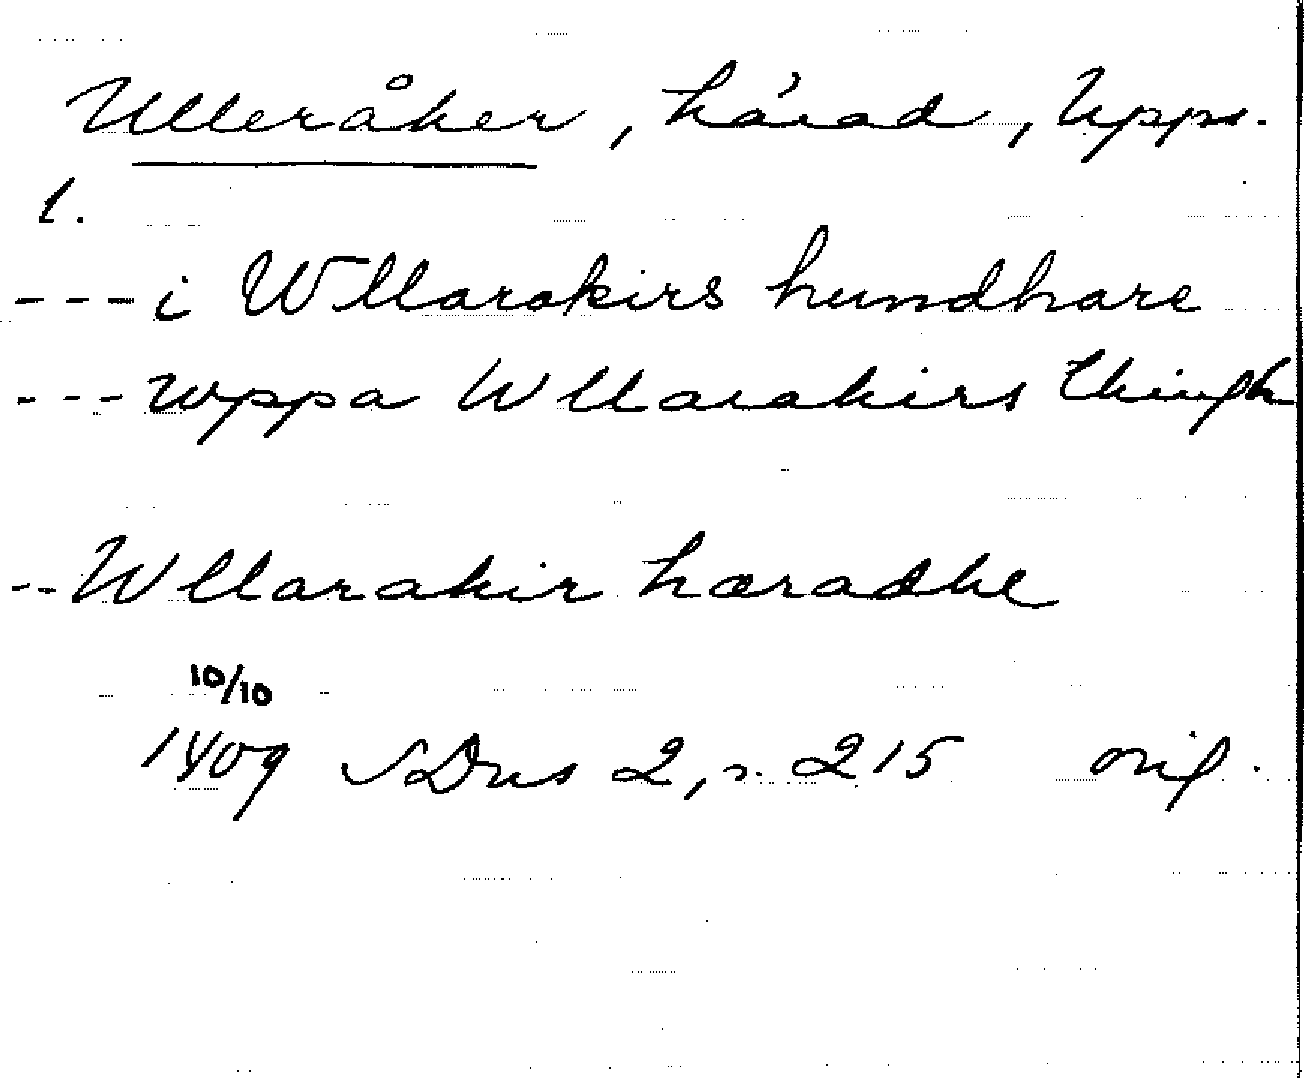 Ulleråker, härad, Upps.
l.
--- i Wllarakirs hundhare
--- wppa Wllarakirs thingh
-- Wllarakir hæradhe
10/10
1409 SDns 2, s. 215 orig.